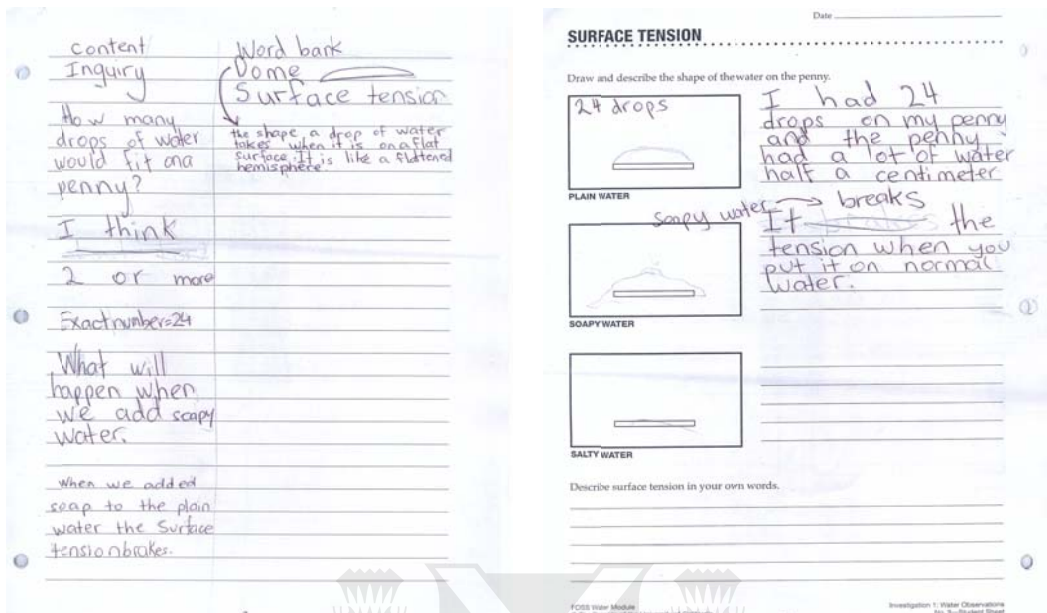 content
Inquiry
How many
drops of water
would fit on a
penny?
I think
2 or more
Exact number=24
What will
happen when
we add soapy
water.
when we added
soap to the plain
water the Surface
tension brakes.
Word bank
Dome
Surface tension
the shape a drop of water
takes when it is on a flat
surface. It is like a flattened
hemisphere.
Date
SURFACE TENSION
Draw and describe the shape of the water on the penny.
24 drops
PLAIN WATER
I had 24
drops on my penny
and the penny
had a lot of water
half a centimeter
soapy water → breaks
It the
tension when you
put it on normal
water.
SOAPY WATER
SALTY WATER
Describe surface tension in your own words.
FOSS Water Module
Investigation 1: Water Observations
No. 3—Student Sheet